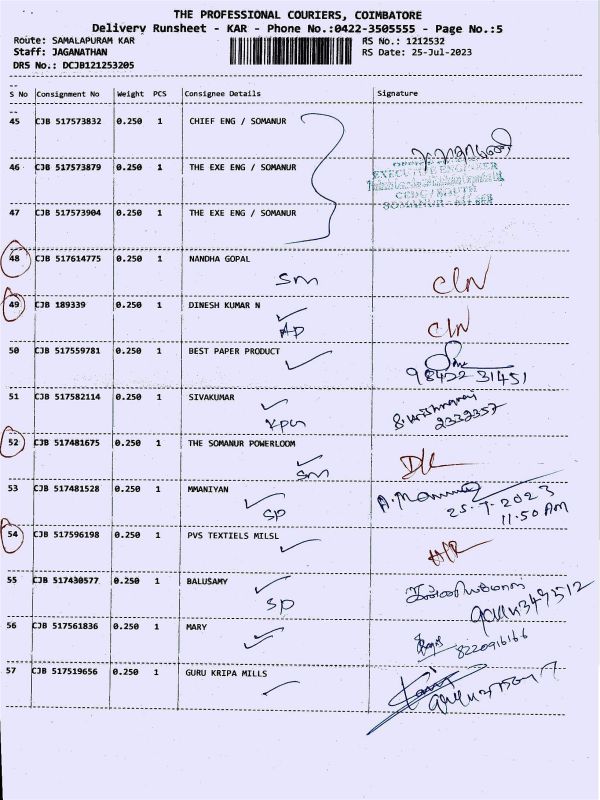 THE PROFESSIONAL COURIERS, COIMBATORE
Delivery Runsheet - KAR - Phone No.:0422-3505555 - Page No.:5
Route: SAMALAPURAM KAR RS No.: 1212532
Staff: JAGANATHAN RS Date: 25-Jul-2023
DRS No.: DCJB121253205
S No Consignment No Weight PCS Consignee Details Signature
45 CJB 517573832 0.250 1 CHIEF ENG / SOMANUR
46 CJB 517573879 0.250 1 THE EXE ENG / SOMANUR
EXECUTIVE ENGINEER
47 CJB 517573904 0.250 1 THE EXE ENG / SOMANUR
48 CJB 517614775 0.250 1 NANDHA GOPAL
Sm
49 CJB 189339 0.250 1 DINESH KUMAR N
AP
50 CJB 517559781 0.250 1 BEST PAPER PRODUCT
98422 31451
51 CJB 517582114 0.250 1 SIVAKUMAR
2332357
52 CJB 517481675 0.250 1 THE SOMANUR POWERLOOM
Sm
53 CJB 517481528 0.250 1 MMANIYAN
SP
25.7.2023
11.50 AM
54 CJB 517596198 0.250 1 PVS TEXTIELS MILSL
55 CJB 517430577 0.250 1 BALUSAMY
SP
56 CJB 517561836 0.250 1 MARY
8220916166
57 CJB 517519656 0.250 1 GURU KRIPA MILLS